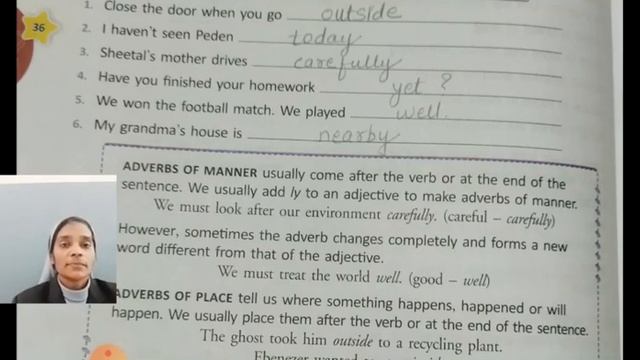 36
1. Close the door when you go outside
2. I haven't seen Peden today
3. Sheetal's mother drives carefully
4. Have you finished your homework yet ?
5. We won the football match. We played well.
6. My grandma's house is nearby
ADVERBS OF MANNER usually come after the verb or at the end of the
sentence. We usually add ly to an adjective to make adverbs of manner.
We must look after our environment carefully. (careful – carefully)
However, sometimes the adverb changes completely and forms a new
word different from that of the adjective.
We must treat the world well. (good – well)
ADVERBS OF PLACE tell us where something happens, happened or will
happen. We usually place them after the verb or at the end of the sentence.
The ghost took him outside to a recycling plant.
Ebenezer wanted